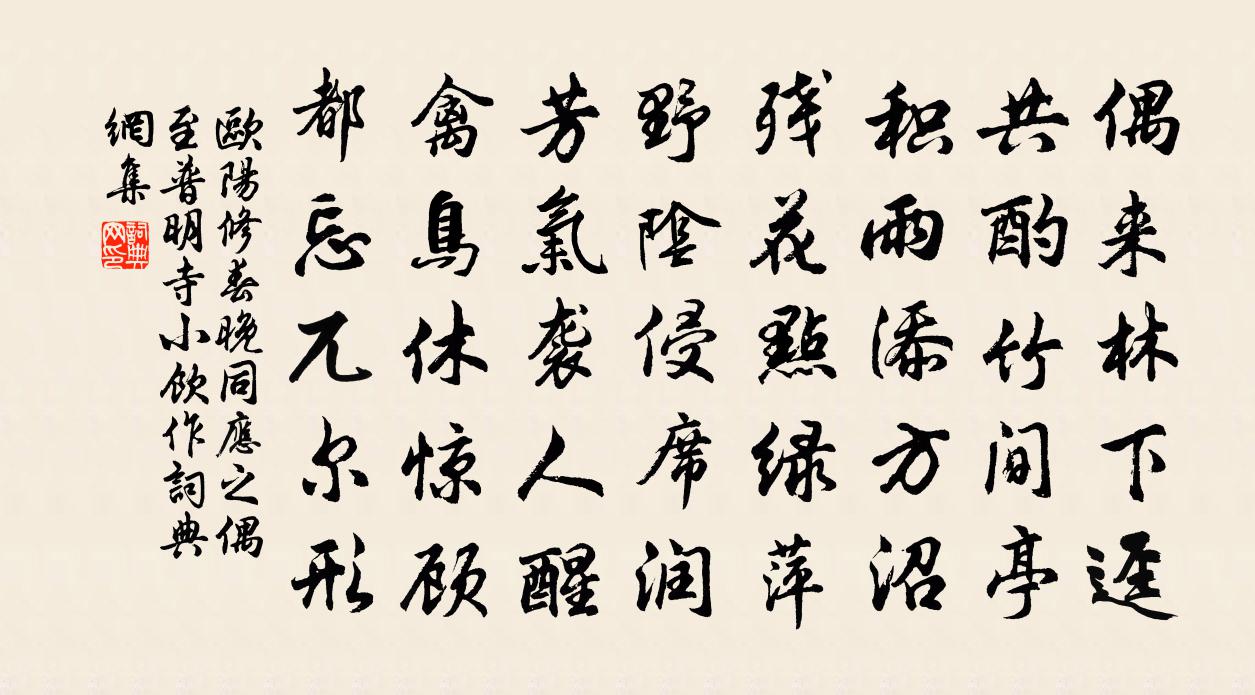 偶来林下逕
共酌竹间亭
积雨添方沼
残花點绿萍
野陰侵席润
芳氣袭人醒
禽鳥休惊顾
都忘兀尔形
歐陽修春晚同應之偶
至普明寺小飲作詞典
網集
詞典网印